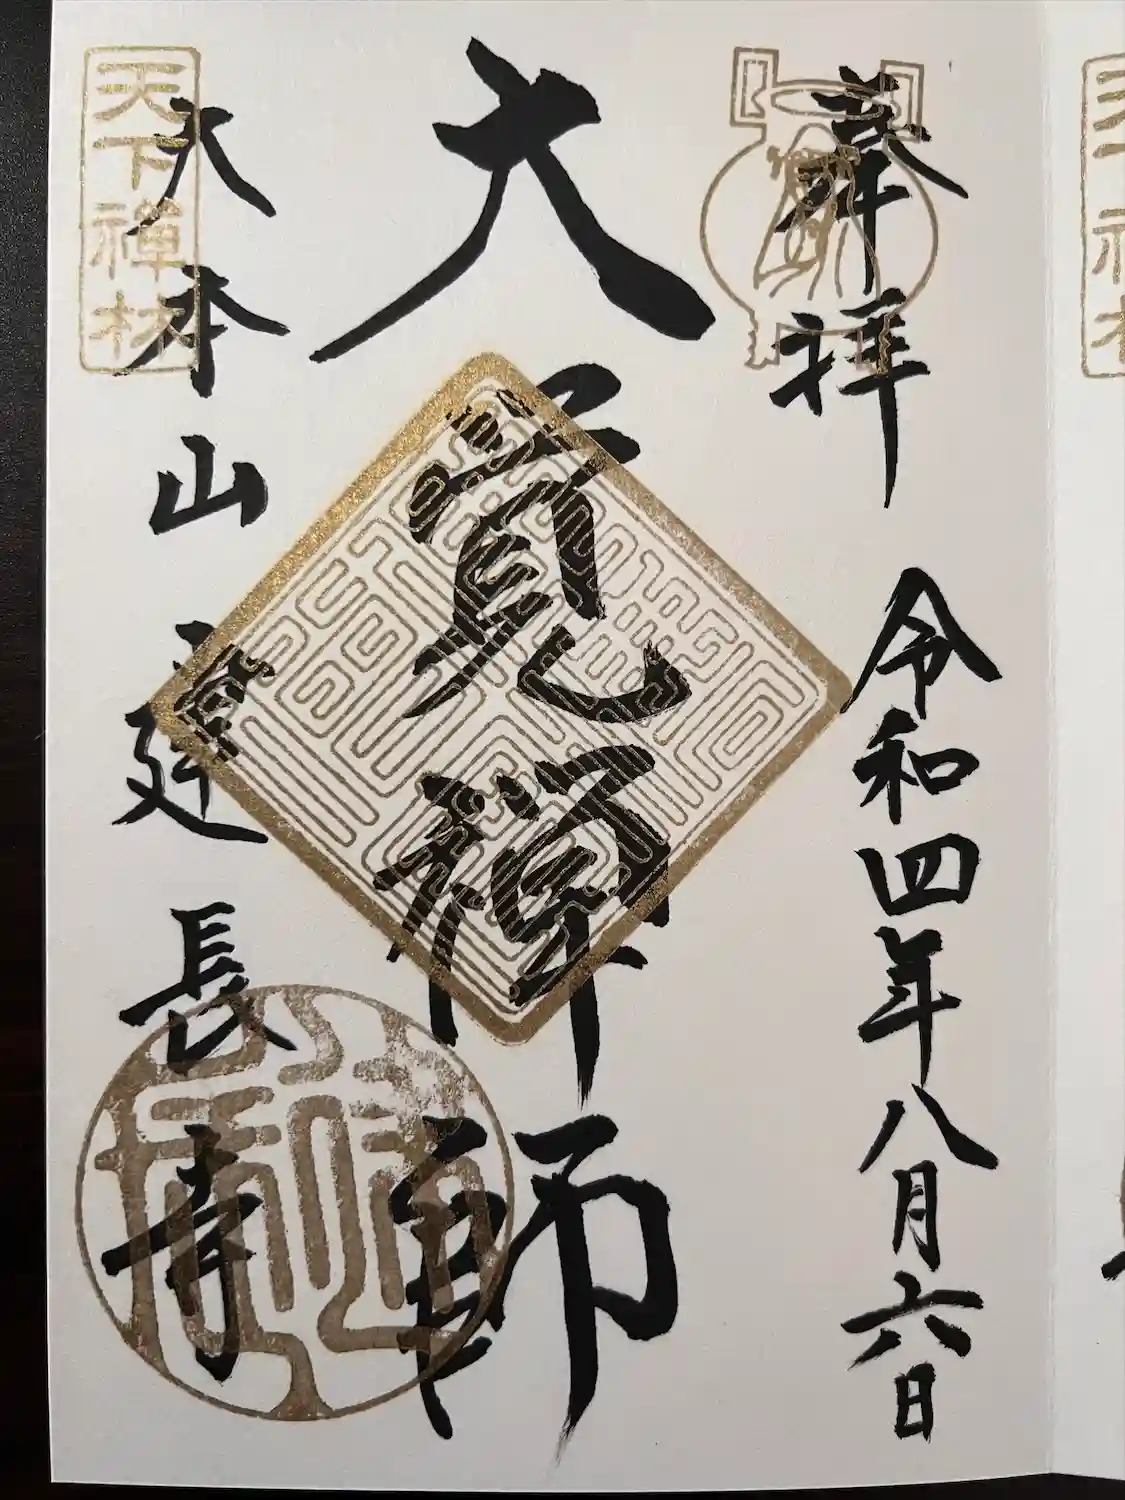 奉拝 令和四年八月六日
大覚禅師
大本山 建長寺
天下禅林